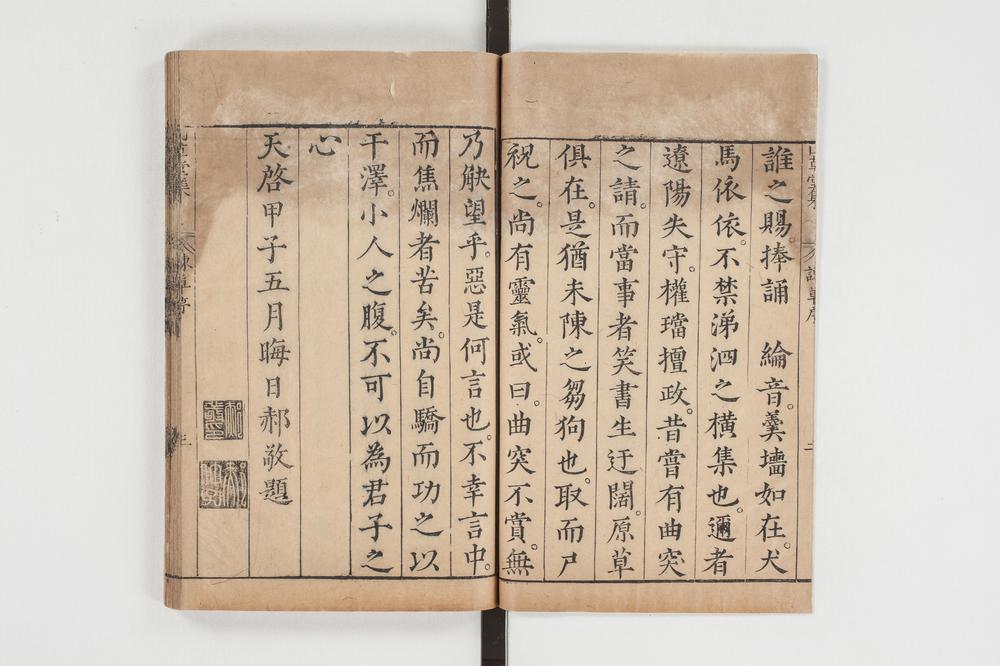 誰之賜。捧誦　綸音。羹墻如在。犬
馬依依。不禁涕泗之橫集也。邇者
遼陽失守。權璫擅政。昔嘗有曲突
之請。而當事者笑書生迂闊。原草
俱在。是猶未陳之芻狗也。取而尸
祝之。尚有靈氣。或曰。曲突不賞。無
乃觖望乎。惡是何言也。不幸言中。
而焦爛者苦矣。尚自驕而功之以
干澤。小人之腹。不可以為君子之
心
天啓甲子五月晦日郝敬題